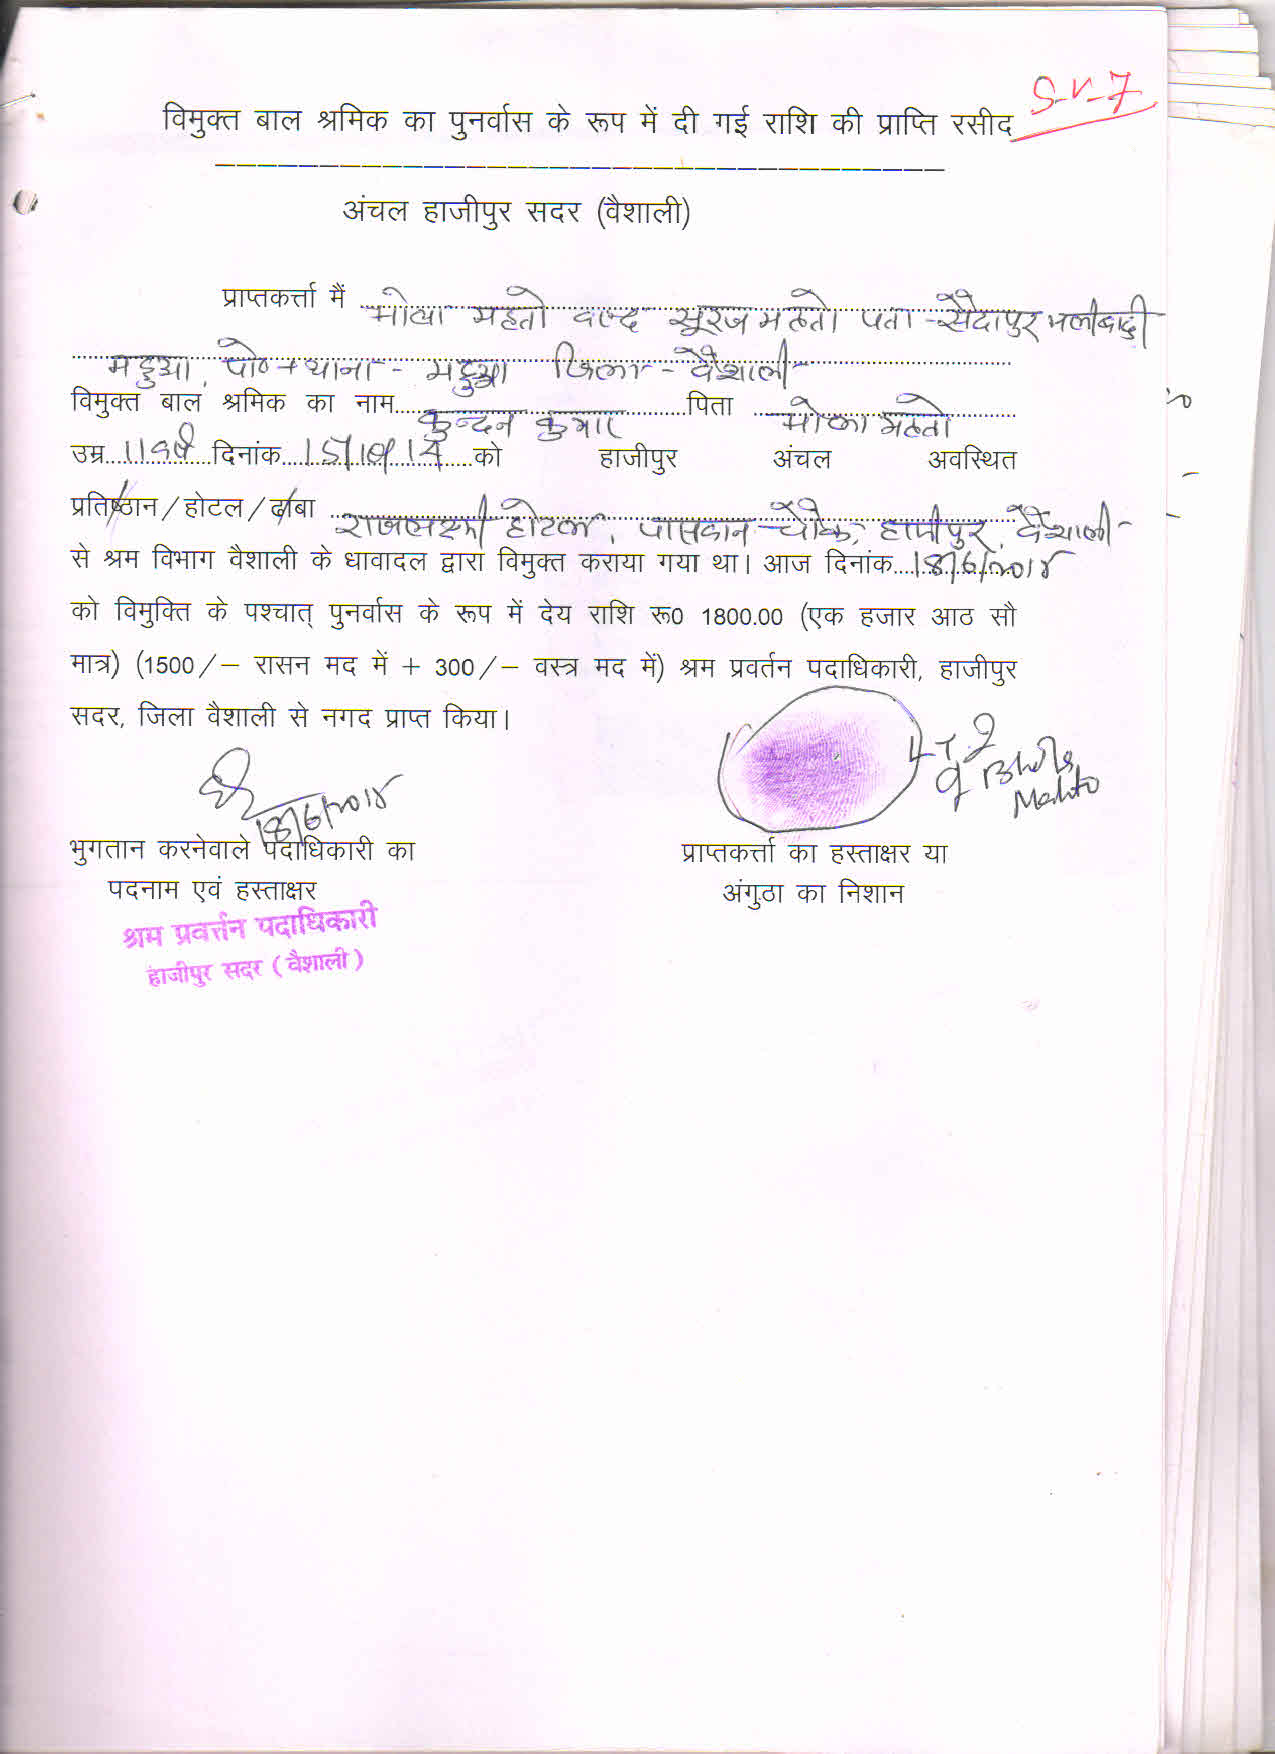 S-V-7
विमुक्त बाल श्रमिक का पुनर्वास के रूप में दी गई राशि की प्राप्ति रसीद
अंचल हाजीपुर सदर (वैशाली)
प्राप्तकर्त्ता मैं भोला महतो वल्द सूरज महतो पता - सैदापुर
महुआ, पो० + थाना - महुआ जिला - वैशाली
विमुक्त बाल श्रमिक का नाम कुन्दन कुमार पिता भोला महतो
उम्र 11 वर्ष दिनांक 15/10/14 को हाजीपुर अंचल अवस्थित
प्रतिष्ठान/होटल/ढाबा राजलक्ष्मी होटल, पासवान चौक, हाजीपुर, वैशाली
से श्रम विभाग वैशाली के धावादल द्वारा विमुक्त कराया गया था। आज दिनांक 18/6/2015
को विमुक्ति के पश्चात् पुनर्वास के रूप में देय राशि रू0 1800.00 (एक हजार आठ सौ
मात्र) (1500/– रासन मद में + 300/– वस्त्र मद में) श्रम प्रवर्तन पदाधिकारी, हाजीपुर
सदर, जिला वैशाली से नगद प्राप्त किया।
L.T.I
of Bhola
Mahto
18/6/2015
भुगतान करनेवाले पदाधिकारी का प्राप्तकर्त्ता का हस्ताक्षर या
पदनाम एवं हस्ताक्षर अंगुठा का निशान
श्रम प्रवर्त्तन पदाधिकारी
हाजीपुर सदर (वैशाली)